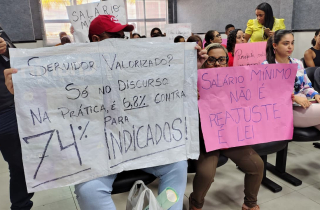 SALÁRIO
SERVIDOR VALORIZADO?
SÓ NO DISCURSO
NA PRÁTICA, É 6,8% CONTRA
74% PARA
INDICADOS!
SALÁRIO MÍNIMO
NÃO É
REAJUSTE
É LEI